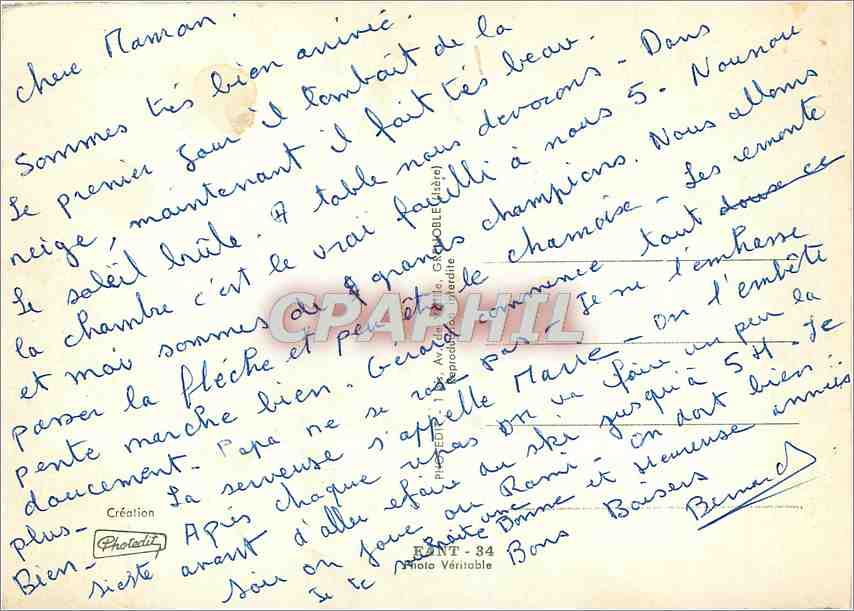 chere Maman.
Sommes très bien arrivé.
Le premier jour il tombait de la
neige, maintenant il fait très beau.
Le soleil brûle. A table nous devorons - Dans
la chambre c'est le vrai fouilli à nous 5 - Nounou
et moi sommes de grands champions. Nous allons
passer la flèche et peut être le chamoise - Les remonte
pente marche bien. Gérard commence tout douce ce
doucement - Papa ne se rase pas - Je ne l'embrasse
plus - La serveuse s'appelle Marre - On l'embête
Bien - Après chaque repas on va faire un peu la
sieste avant d'aller faire du ski jusqu'à 5H - Le
soir on joue au Rami - On dort bien.
Je te souhaite une Bonne et Heureuse année
Bons Baisers
Bernard
Création
Photedit
PHOTEDIT - 1 Av. de GRENOBLE (Isère)
Reproduction interdite
FANT - 34
Photo Véritable
CPAPHIL